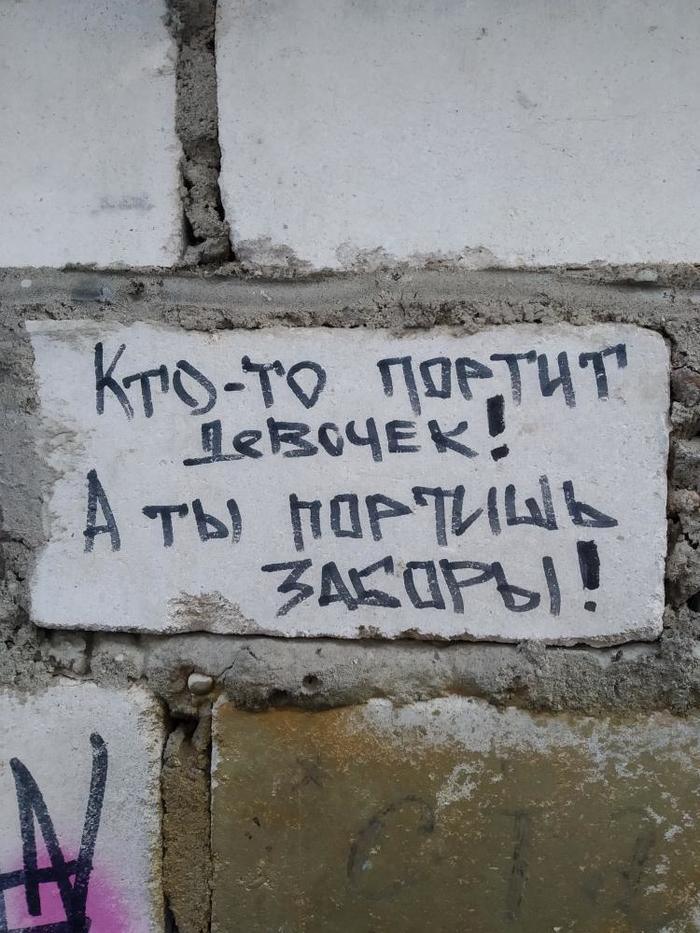 КТО-ТО ПОРТИТ
ДеВОЧЕК!
А ТЫ ПОРТИШЬ
ЗАБОРЫ!